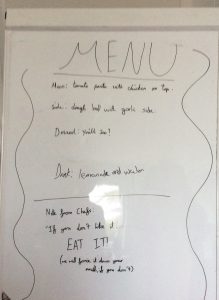 MENU
Main: tomato pasta with chicken on top.
Side: dough ball with garlic side.
Dessert: you'll see?
Drink: lemonade and water
Note from Chefs:
"If you don't like it...
EAT IT!
(we will force it down your
mouth if you don't)